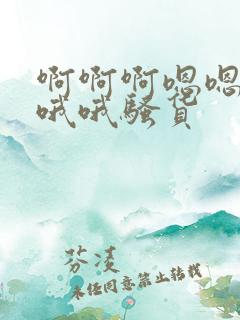 啊啊啊嗯嗯
哦哦骚货
芬凌
未经同意禁止转载